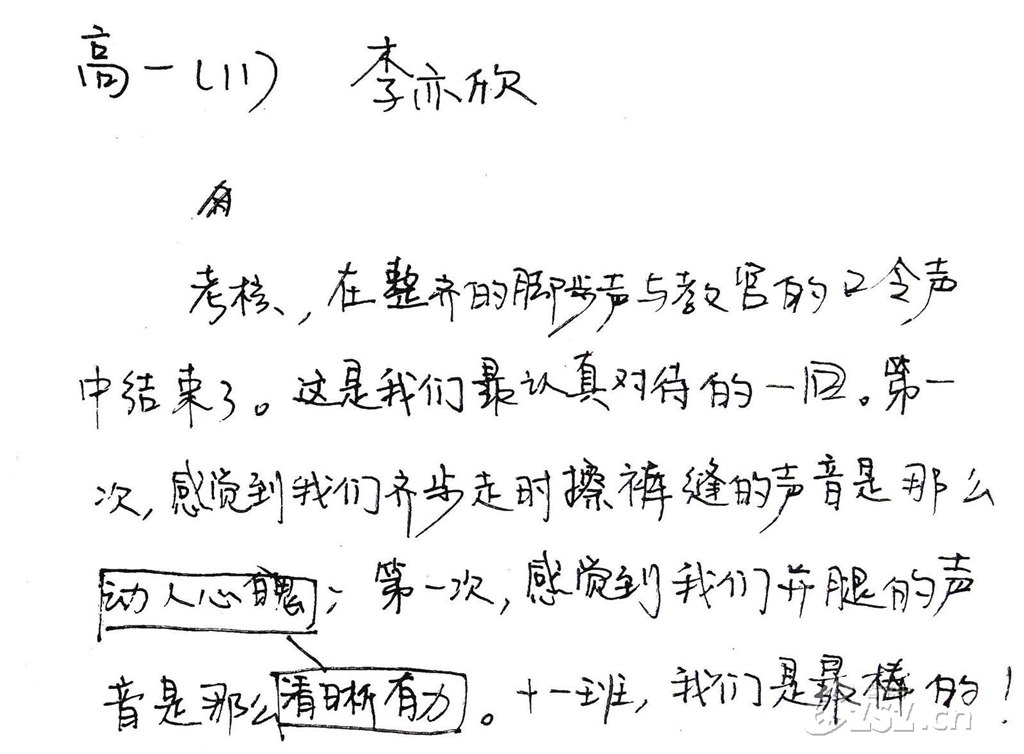 高一(11) 李亦欣
考核,在整齐的脚步声与教官的口令声
中结束了。这是我们最认真对待的一回。第一
次,感觉到我们齐步走时擦裤缝的声音是那么
动人心魄;第一次,感觉到我们并腿的声
音是那么清晰有力。十一班,我们是最棒的!